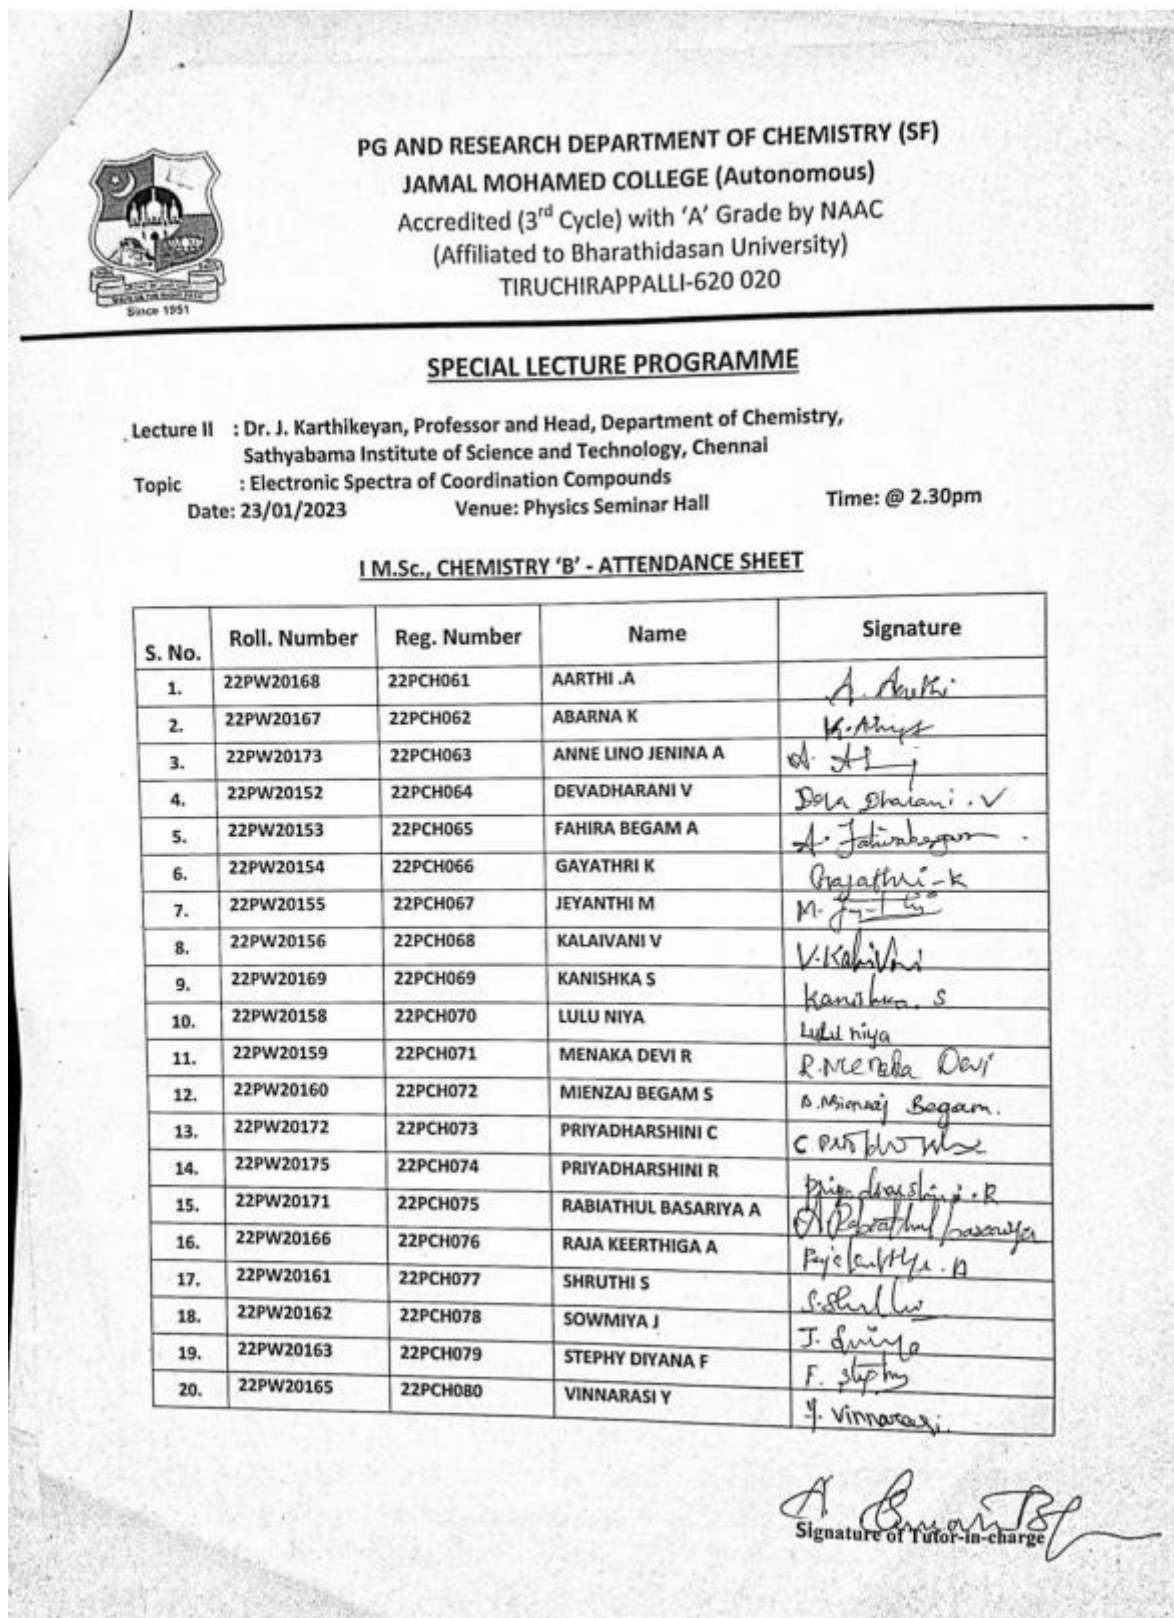 PG AND RESEARCH DEPARTMENT OF CHEMISTRY (SF)
JAMAL MOHAMED COLLEGE (Autonomous)
Accredited (3rd Cycle) with 'A' Grade by NAAC
(Affiliated to Bharathidasan University)
TIRUCHIRAPPALLI-620 020
Since 1951
SPECIAL LECTURE PROGRAMME
Lecture II : Dr. J. Karthikeyan, Professor and Head, Department of Chemistry,
Sathyabama Institute of Science and Technology, Chennai
Topic : Electronic Spectra of Coordination Compounds
Date: 23/01/2023 Venue: Physics Seminar Hall Time: @ 2.30pm
I M.Sc., CHEMISTRY 'B' - ATTENDANCE SHEET
S. No. Roll. Number Reg. Number Name Signature
1. 22PW20168 22PCH061 AARTHI .A A. Aarthi
2. 22PW20167 22PCH062 ABARNA K
3. 22PW20173 22PCH063 ANNE LINO JENINA A
4. 22PW20152 22PCH064 DEVADHARANI V Deva Dharani . V
5. 22PW20153 22PCH065 FAHIRA BEGAM A A. Fahirabegam
6. 22PW20154 22PCH066 GAYATHRI K Gayathri - K
7. 22PW20155 22PCH067 JEYANTHI M M.
8. 22PW20156 22PCH068 KALAIVANI V
9. 22PW20169 22PCH069 KANISHKA S Kanishka. S
10. 22PW20158 22PCH070 LULU NIYA Lulu niya
11. 22PW20159 22PCH071 MENAKA DEVI R R. Menaka Devi
12. 22PW20160 22PCH072 MIENZAJ BEGAM S Begam.
13. 22PW20172 22PCH073 PRIYADHARSHINI C C
14. 22PW20175 22PCH074 PRIYADHARSHINI R Priyadharshini . R
15. 22PW20171 22PCH075 RABIATHUL BASARIYA A A. Rabiathul basariya
16. 22PW20166 22PCH076 RAJA KEERTHIGA A
17. 22PW20161 22PCH077 SHRUTHI S
18. 22PW20162 22PCH078 SOWMIYA J J.
19. 22PW20163 22PCH079 STEPHY DIYANA F F. Stephy
20. 22PW20165 22PCH080 VINNARASI Y Y. Vinnarasi
Signature of Tutor-in-charge